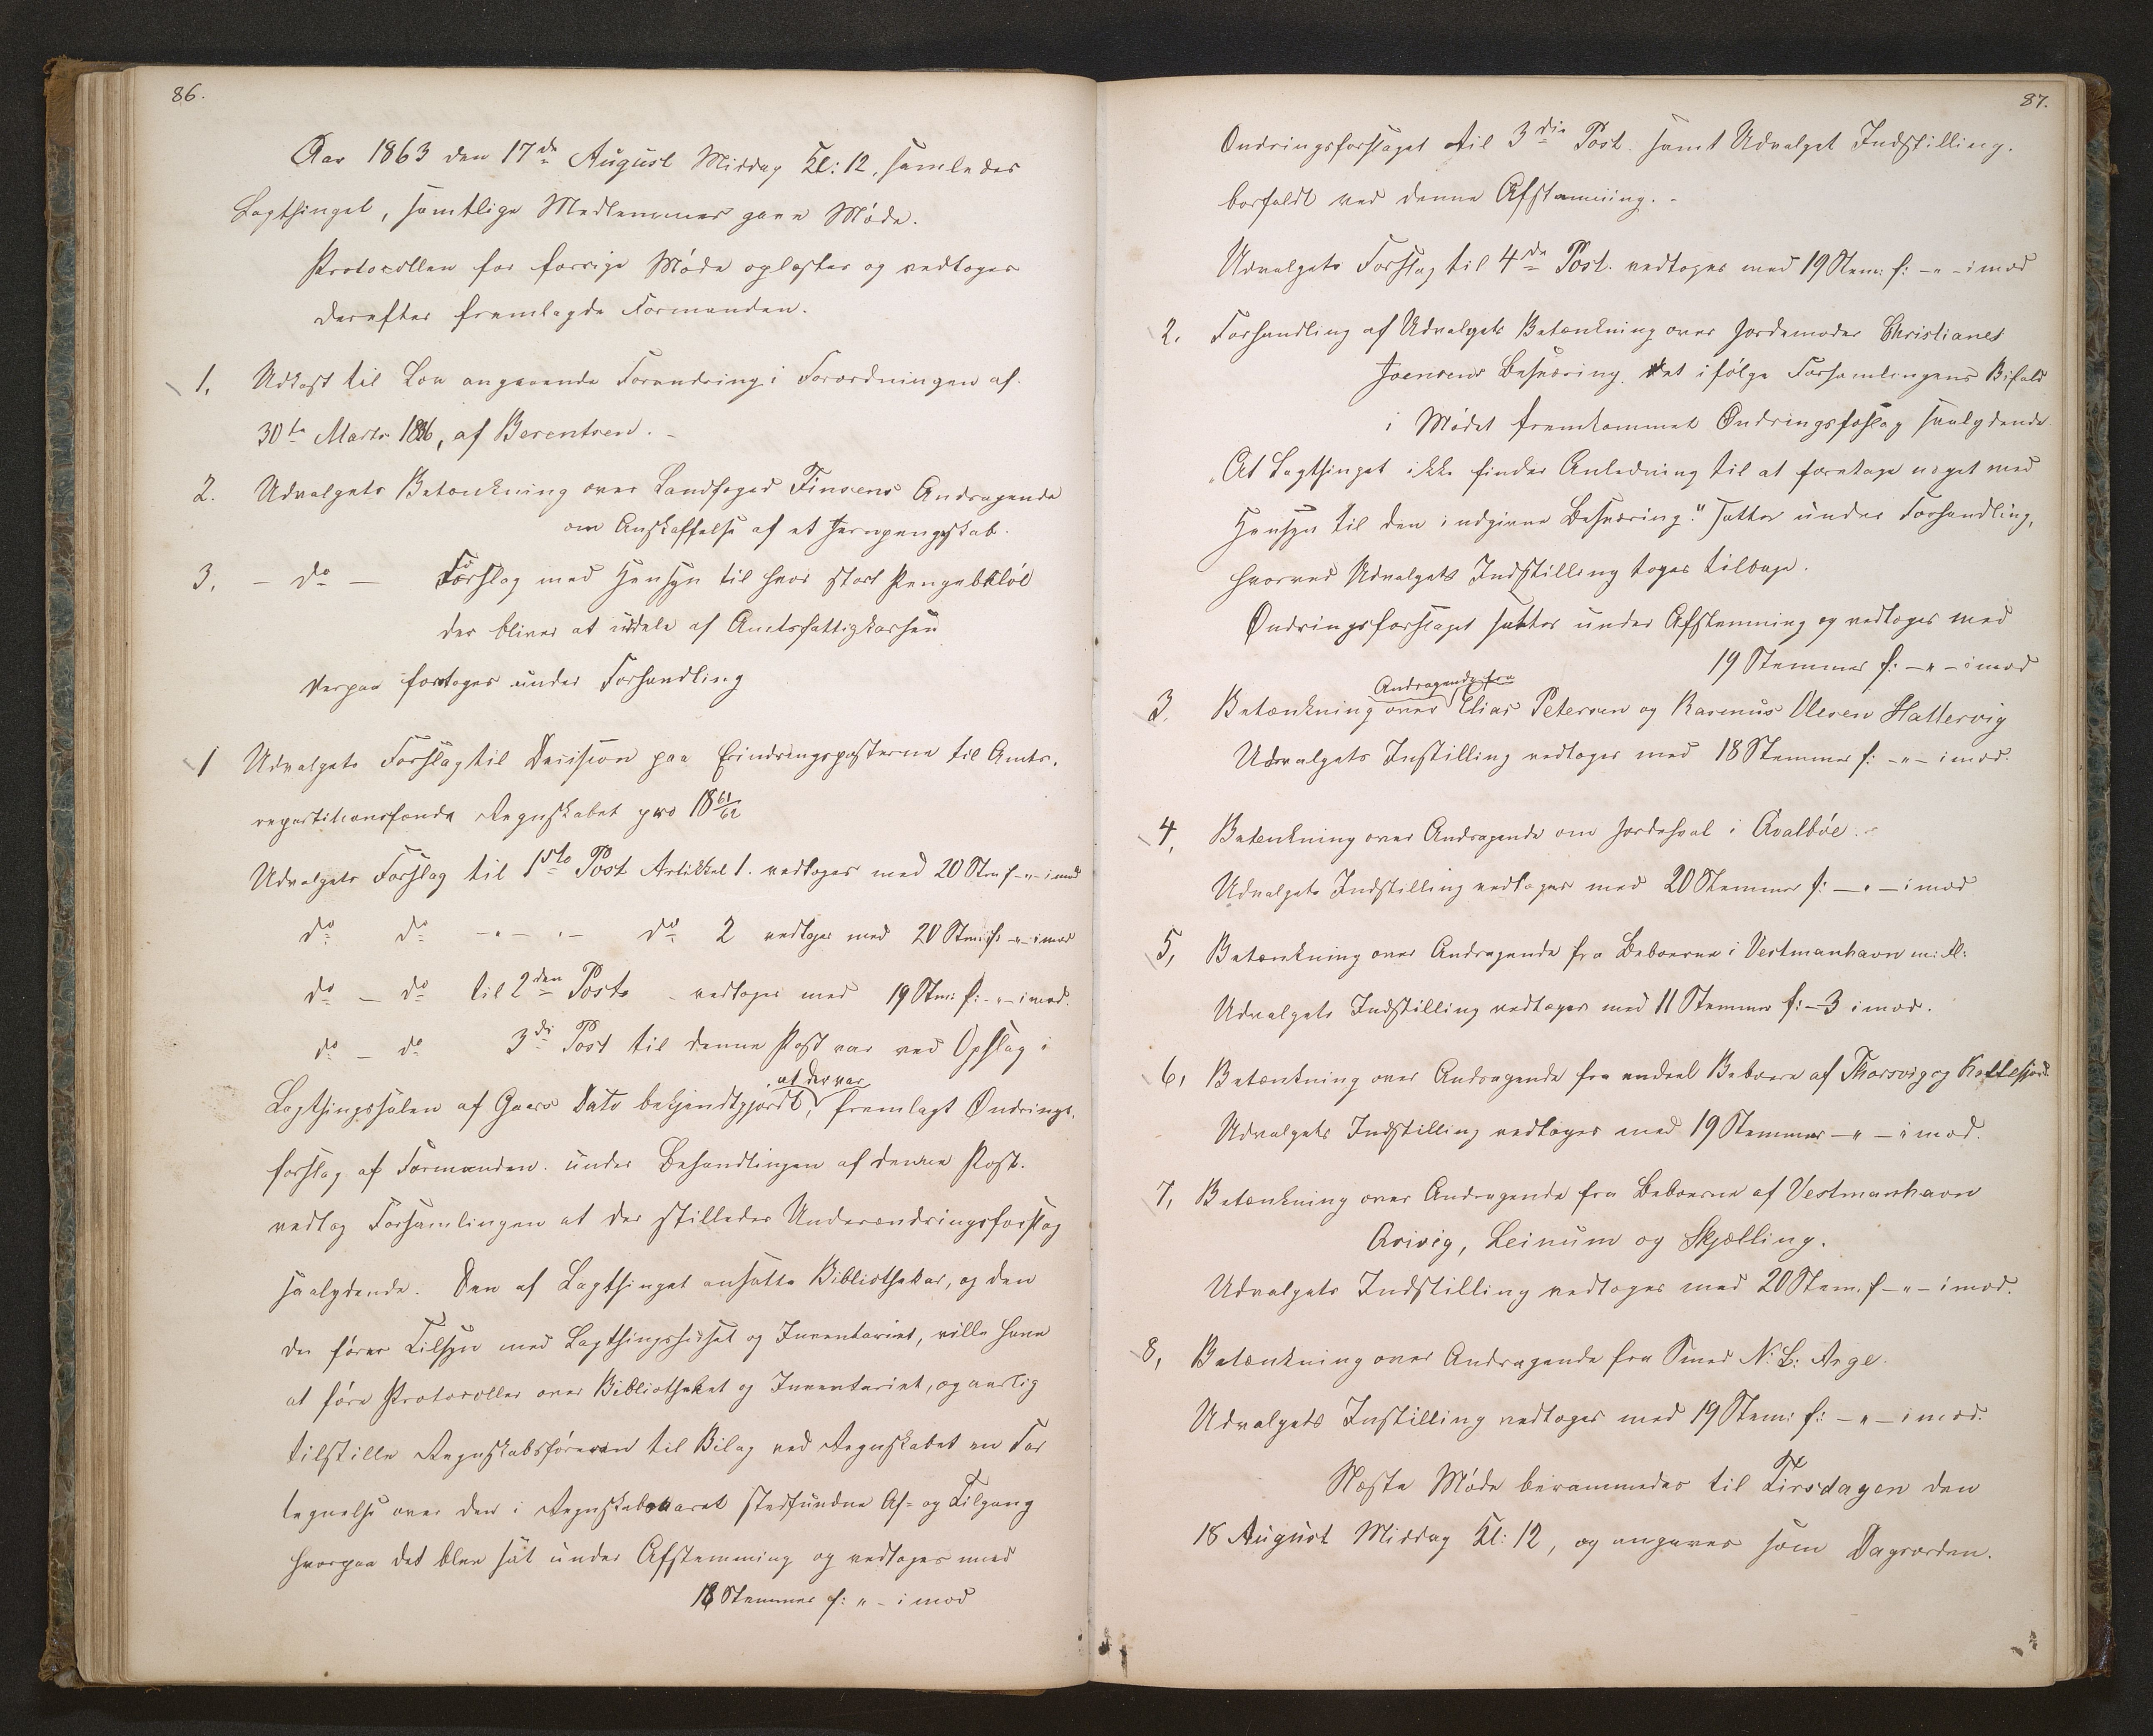 86.
Aar 1863 den 17de August Middag Kl: 12, samledes
Lagthinget, samtlige Medlemmer gave Møde.
Protocollen for forrige Møde oplæstes og vedtoges
derefter fremlagde Formanden.
1. Udkast til Lov angaaende Forandring i Forordningen af
30te Marts 1836, af Berentsen.
2. Udvalgets Betænkning over Landfoged Finsens Andragende
om Anskaffelse af et Jernpengeskab.
3. – do – Forslag med Hensyn til hvor stort Pengebeløb
der bliver at uddele af Amtsfattigkassen
Derpaa foretoges under Forhandling
1 Udvalgets Forslag til Decision paa Erindringsposterne til Amts-
repartitionsfonds Regnskabet pro 1861/62
Udvalgets Forslag til 1ste Post Artikkel 1. vedtoges med 20 Stm f – " – imod
do do – " – " – do 2 vedtoges med 20 Stm: f: – " – imod
do – do til 2den Post – vedtoges med 19 Stm: f: – " – imod.
do – do 3die Post til denne Post var ved Opslag i
at der var
Lagthingssalen af Gaars Dato bekjendtgjordt, fremlagt Ændrings-
forslag af Formanden. under Behandlingen af denne Post.
vedtog Forsamlingen at der stilledes Underændringsforslag
saalydende. Den af Lagthinget ansatte Bibliothekar, og den
der fører Tilsyn med Lagthingshuset og Inventariet, ville have
at føre Protocoller over Bibliotheket og Inventariet, og aarlig
tilstille Regnskabsføreren til Bilag ved Regnskabet en For
tegnelse over den i Regnskabsaaret stedfundne Af- og Tilgang
hvorpaa det blev sat under Afstemming og vedtoges med
18 Stemmer f: " – imod
87.
Ændringsforslaget til 3die Post. samt Udvalget Indstilling.
bortfaldt ved denne Afstemning. –
Udvalgets Forslag til 4de Post. vedtoges med 19 Stem: f: – " – imod
2. Forhandling af Udvalgets Betænkning over Jordemoder Christianes
Joensens Besværing. det ifølge Forsamlingens Bifald
i Mødet fremkommet Ændringsfoslag saalydende
"At Lagthinget ikke finder Anledning til at foretage noget med
Hensyn til den indgivne Besværing." sattes under Forhandling,
hvorved Udvalgets Indstilling toges tilbage.
Ændringsforslaget sattes under Afstemning og vedtoges med
19 Stemmer f: – " – imod
Andragende fra
3. Betænkning over Elias Petersen og Rasmus Olesen Hattervig
Udvalgets Instilling vedtoges med 18 Stemmer f: – " – imod.
4. Betænkning over Andragende om Jordehval i Qvalbøe.
Udvalgets Indstilling vedtoges med 20 Stemmer f: – " – imod
5, Betænkning over Andragende fra Beboerne i Vestmanhavn m: fl:
Udvalgets Indstilling vedtoges med 11 Stemmer f: – 3 imod.
6, Betænkning over Andragende fra endeel Beboere af Thorsvig og Kollefjord
Udvalgets Indstilling vedtoges med 19 Stemmer – " – imod.
7, Betænkning over Andragende fra Beboerne af Vestmanhavn
Qvivig, Leinum og Skjælling.
Udvalgets Indstilling vedtoges med 20 Stem. f – " – imod.
8, Betænkning over Andragende fra Smed N: L: Arge.
Udvalgets Instilling vedtoges med 19 Stem: f: – " – imod.
Næste Møde berammedes til Tirsdagen den
18 August Middag Kl: 12, og angaves som Dagsorden.